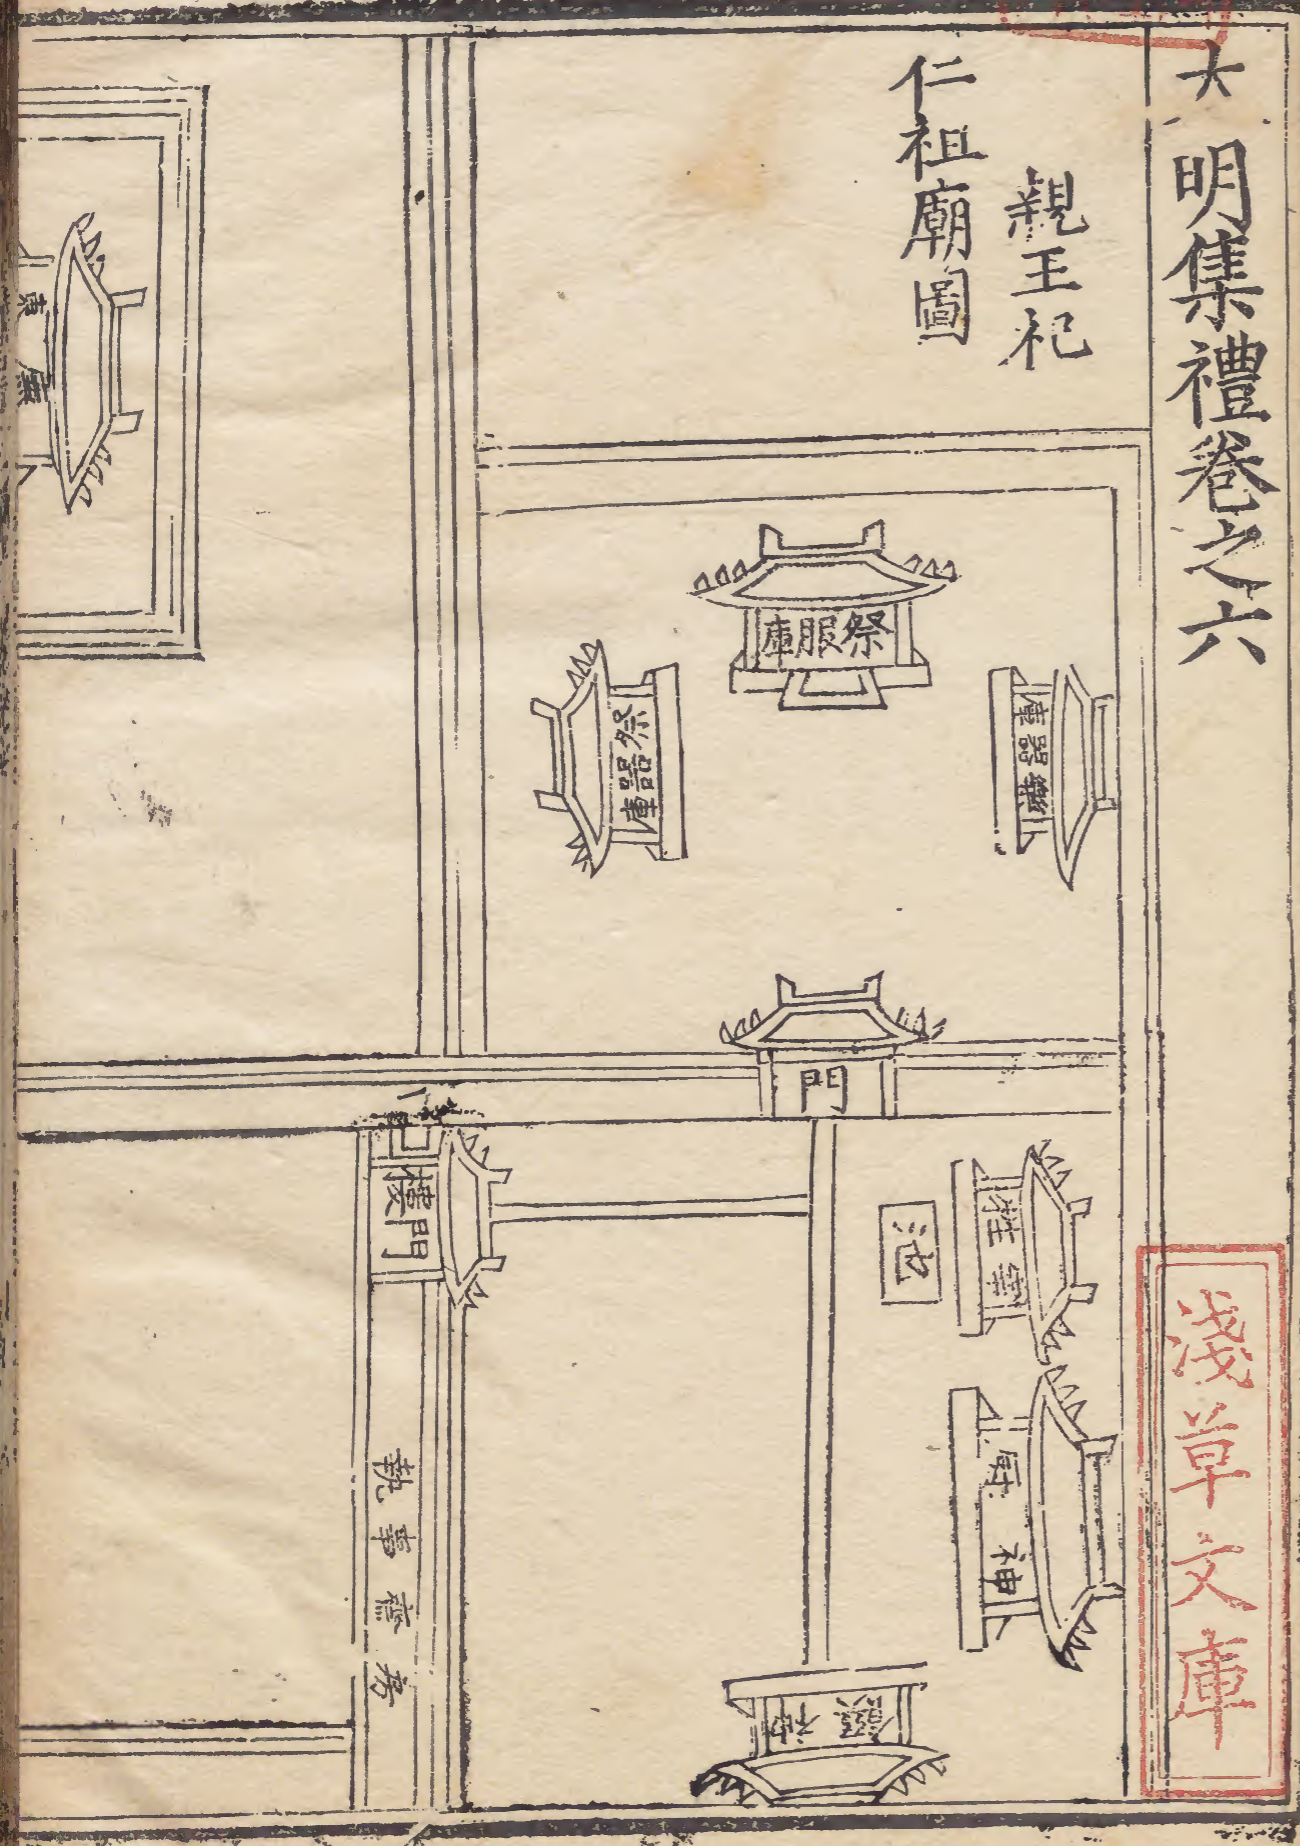 大明集禮卷之六
親王祀
仁祖廟圖
祭服庫
樂器庫
祭器庫
門
宰牲
池
神厨
神
門樓
執事齋房
東廡
淺草文庫